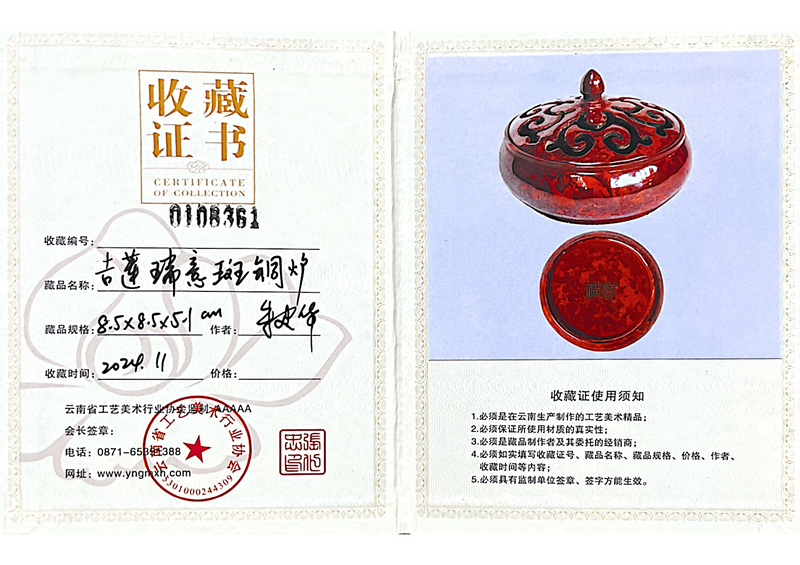 收藏
证书
CERTIFICATE
OF COLLECTION
0108361
收藏编号:
藏品名称: 吉莲瑞意斑铜炉
藏品规格: 8.5x8.5x5.1 cm 作者:
收藏时间: 2024.11 价格:
云南省工艺美术行业协会监制 AAAAA
会长签章:
电话: 0871-65391388
网址: www.yngmxh.com
云南省工艺美术行业协会
5301000244309
收藏证使用须知
1.必须是在云南生产制作的工艺美术精品;
2.必须保证所使用材质的真实性;
3.必须是藏品制作者及其委托的经销商;
4.必须如实填写收藏证号、藏品名称、藏品规格、价格、作者、
收藏时间等内容;
5.必须具有监制单位签章、签字方能生效。